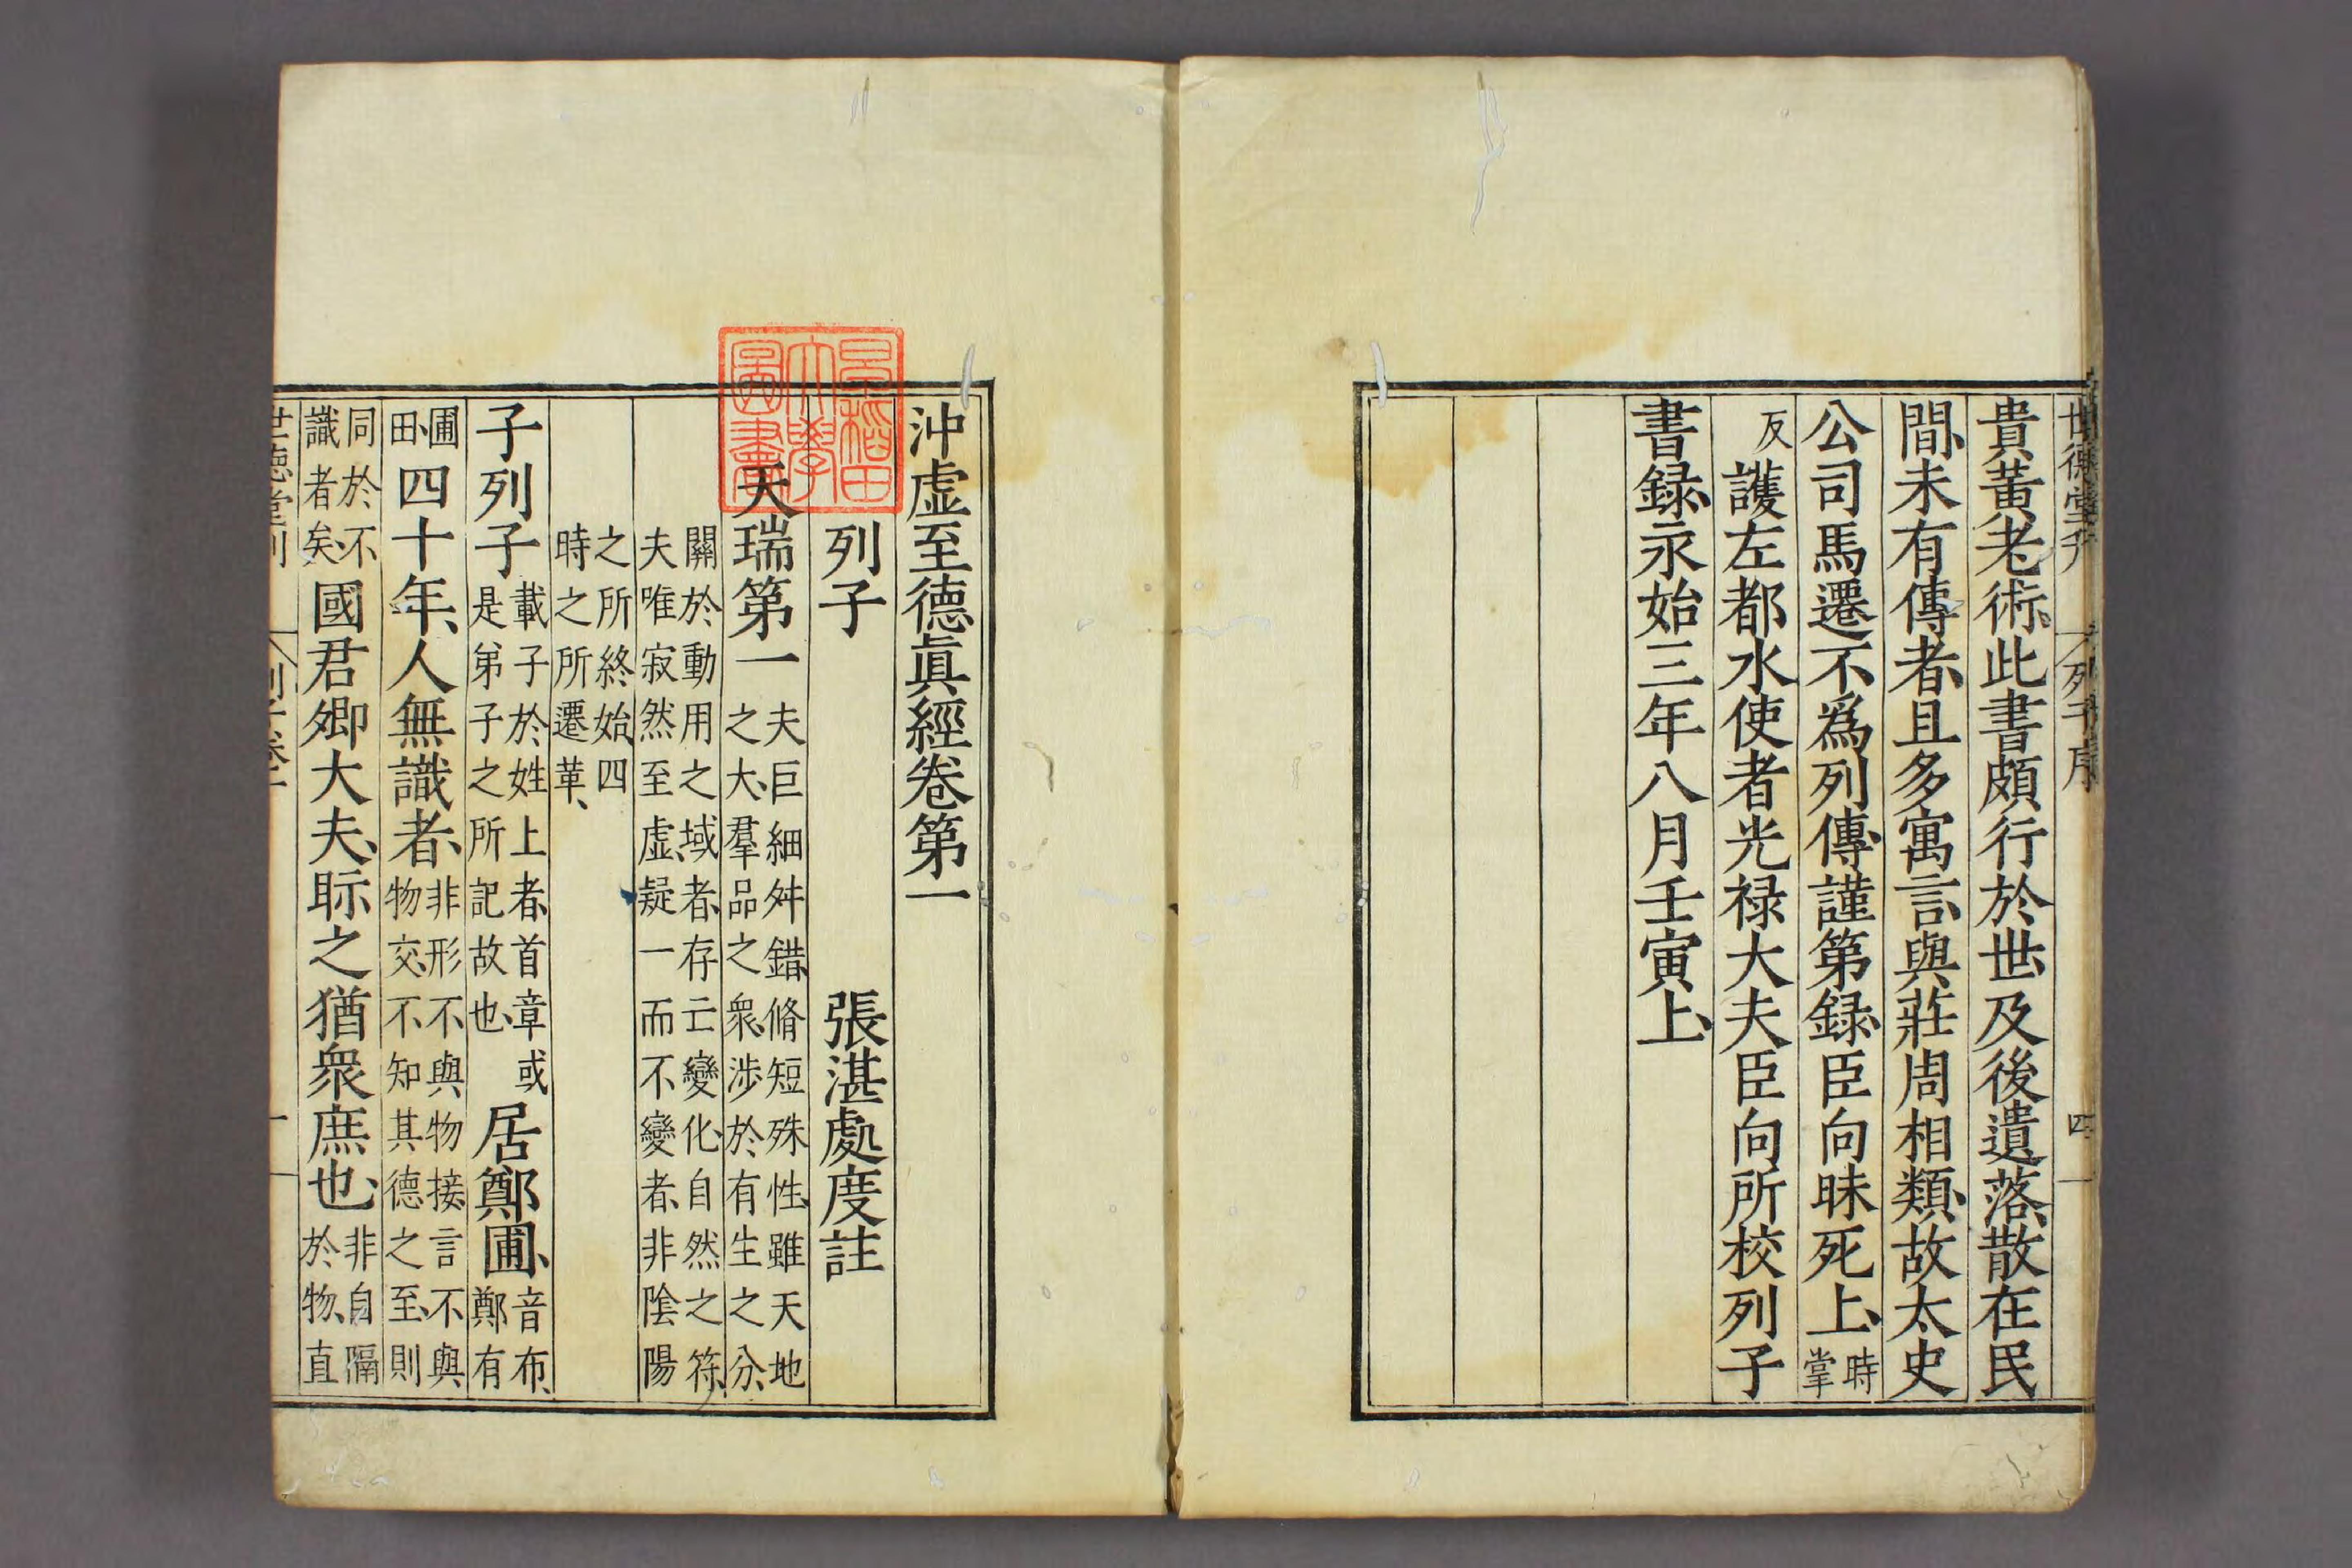 世德堂刋 列子序 四
貴黃老術此書頗行於世及後遺落散在民
間未有傳者且多寓言與莊周相類故太史
公司馬遷不爲列傳謹第録臣向昧死上時掌
反護左都水使者光禄大夫臣向所校列子
書録永始三年八月壬寅上
沖虛至德眞經卷第一
列子 張湛處度註
天瑞第一夫巨細舛錯脩短殊性雖天地之大羣品之衆涉於有生之分
關於動用之域者存亡變化自然之符夫唯寂然至虛疑一而不變者非陰陽
之所終始四時之所遷革
子列子載子於姓上者首章或是弟子之所記故也居鄭圃音布鄭有
圃田四十年人無識者非形不與物接言不與物交不知其德之至則
同於不識者矣國君卿大夫眎之猶衆庶也非自隔於物直
世德堂刋 列子卷一 一
早稻田大學圖書